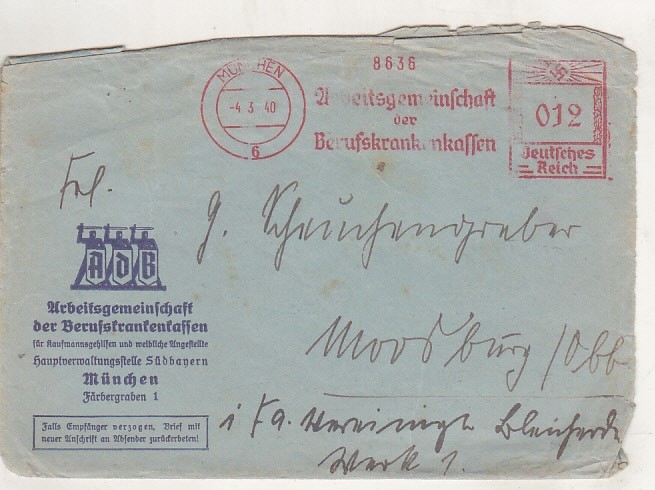 8636
MÜNCHEN
-4. 3. 40
6
Arbeitsgemeinschaft
der
Berufskrankenkassen
012
Deutsches
Reich
Frl.
G. Scheuchengraber
Moosburg/Obb
i Fa. Vereinigte Bleicherde
Werk 1.
AdB
Arbeitsgemeinschaft
der Berufskrankenkassen
für Kaufmannsgehilfen und weibliche Angestellte
Hauptverwaltungsstelle Südbayern
München
Färbergraben 1
Falls Empfänger verzogen, Brief mit
neuer Anschrift an Absender zurückerbeten!